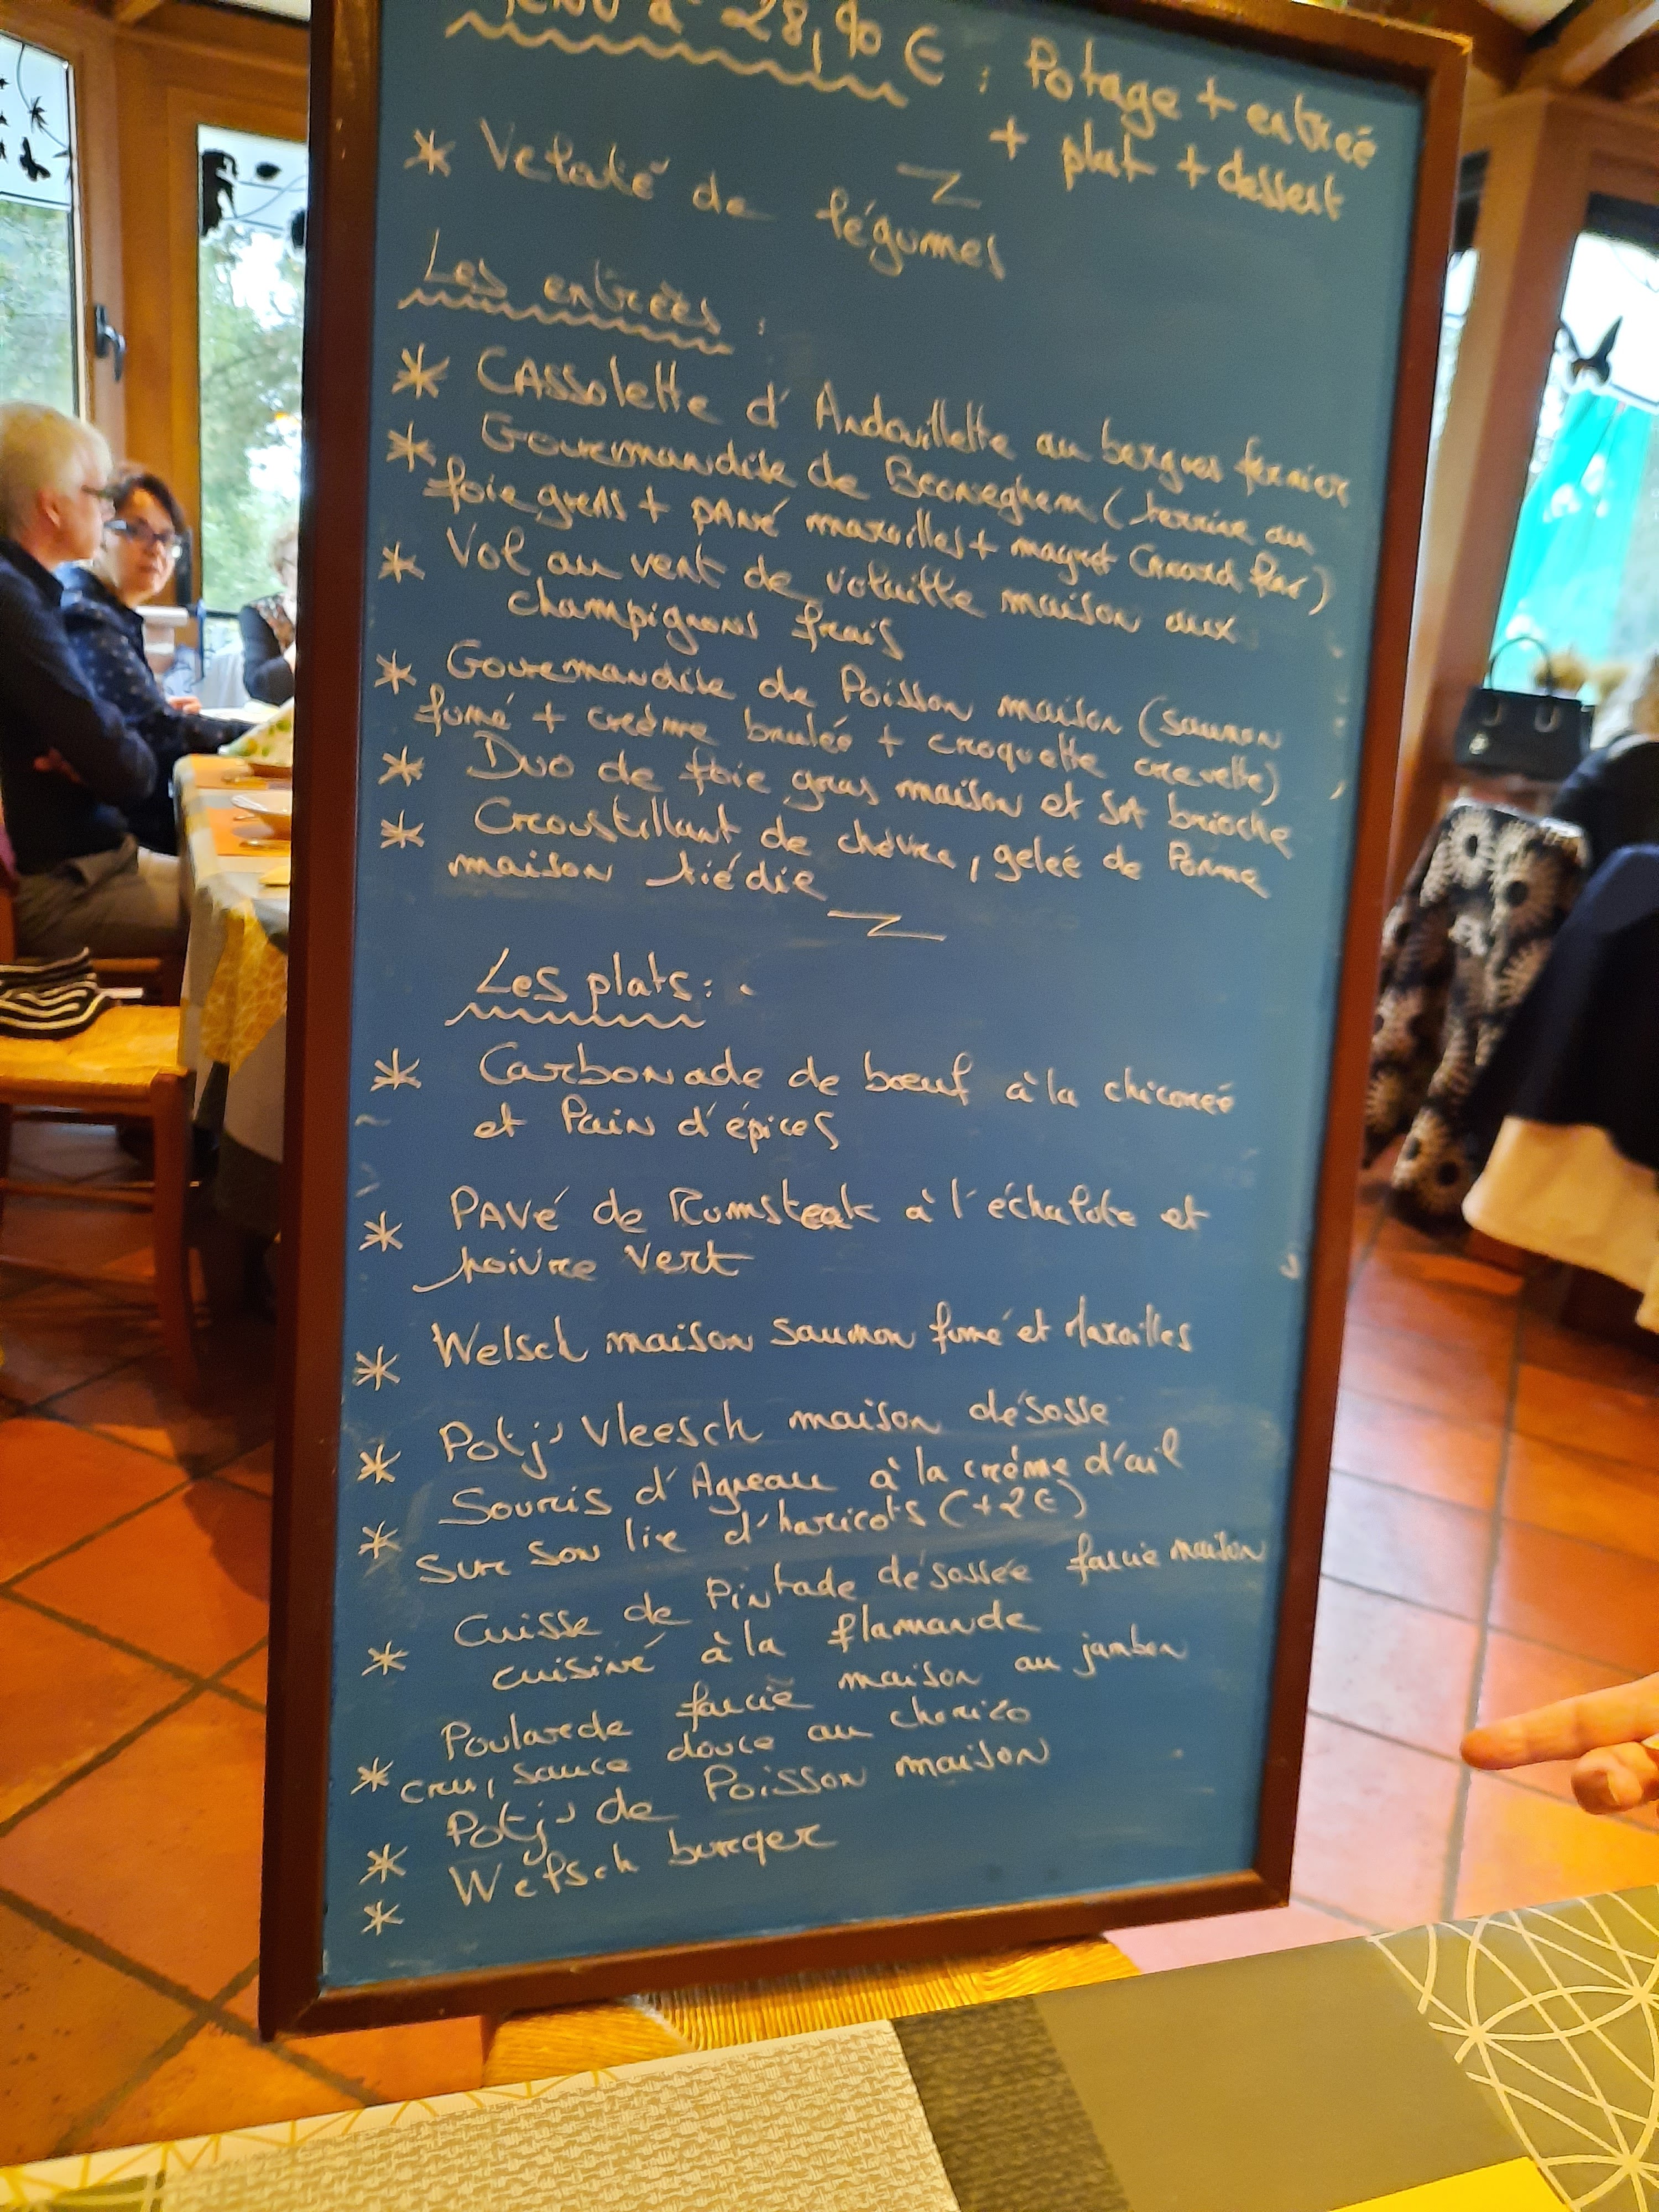 à 28,90 € : Potage + entreé
+ plat + dessert
* Velouté de légumes
Les entreès :
* CAssolette d'Andouillette au bergues fermier
* Gourmandise de Broxeghem (terrine au
foie gras + pavé maroilles + magret Canard fumé)
* Vol au vent de volaille maison aux
champignons frais
* Gourmandise de Poisson maison (saumon
fumé + créme brulée + croquette crevette)
* Duo de foie gras maison et sa brioche
* Croustillant de chévre, geleé de Pomme
maison tiédie
Les plats :
* Carbonade de bœuf à la chicoreé
et Pain d'épices
* PAVé de Rumsteak à l'échalote et
poivre vert
* Welsch maison saumon fumé et Maroilles
* Potj' Vleesch maison désossé
* Souris d'Agneau à la créme d'ail
sur son lit d'haricots (+2€)
* Cuisse de Pintade désossée farcie maison
cuisiné à la flamande
* Poularde farcie maison au jambon
cru, sauce douce au chorizo
* Potj' de Poisson maison
* Welsch burger